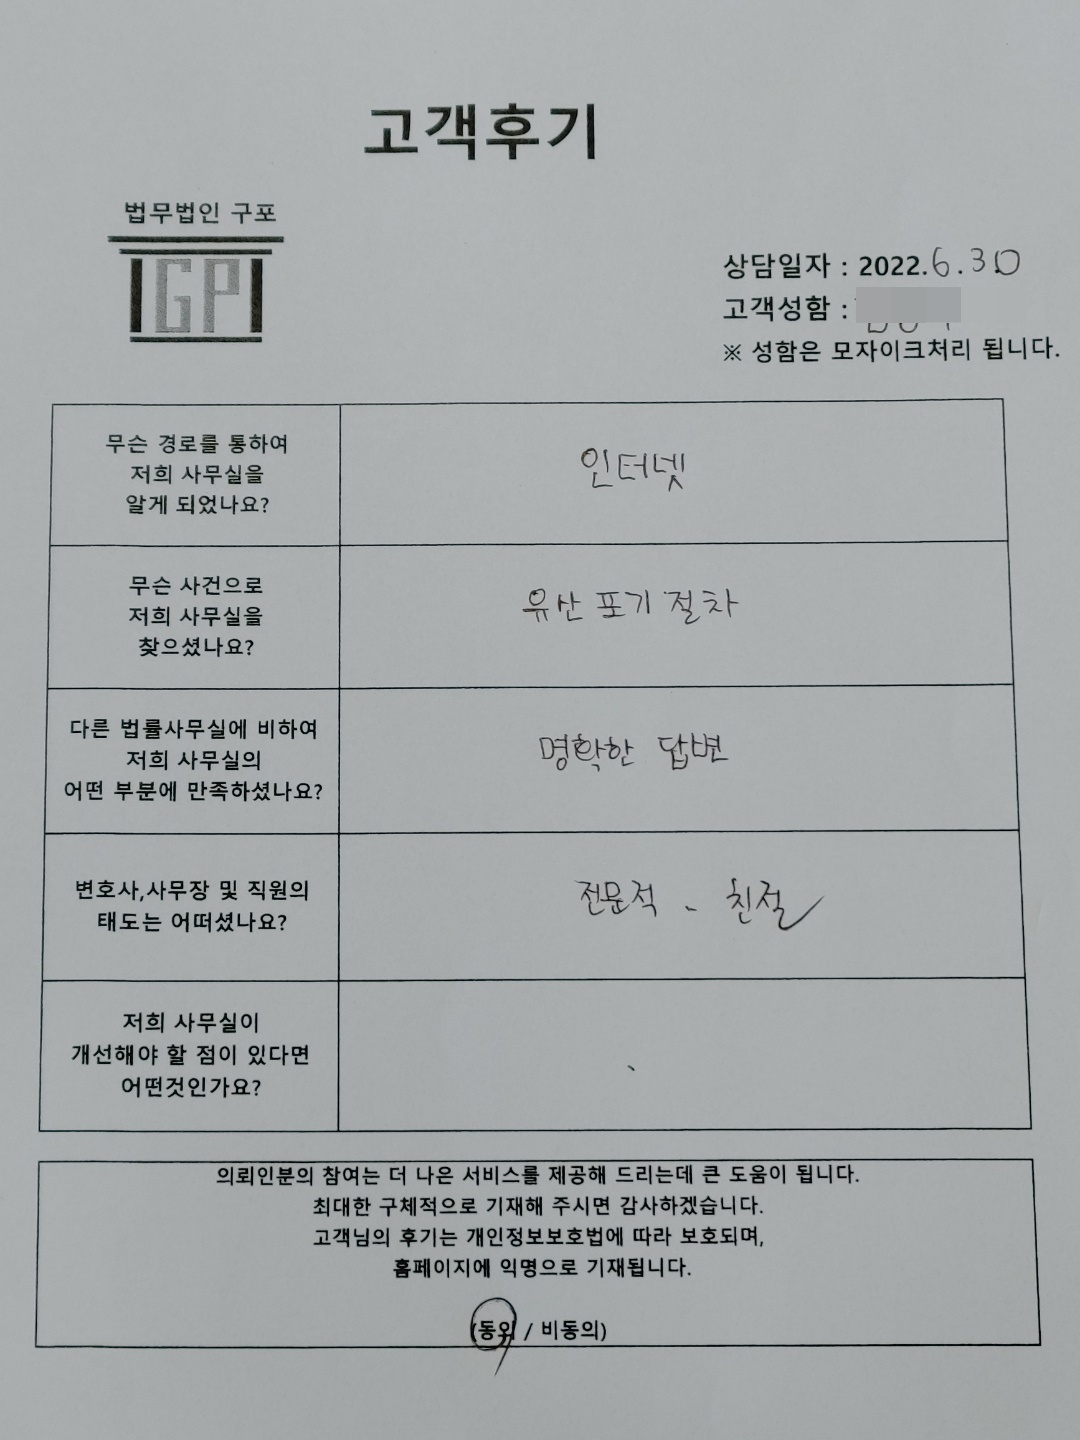 고객후기
법무법인 구포
GP
상담일자 : 2022.6.30
고객성함 :
※ 성함은 모자이크처리 됩니다.
무슨 경로를 통하여
저희 사무실을
알게 되었나요?
인터넷
무슨 사건으로
저희 사무실을
찾으셨나요?
유산 포기 절차
다른 법률사무실에 비하여
저희 사무실의
어떤 부분에 만족하셨나요?
명확한 답변
변호사,사무장 및 직원의
태도는 어떠셨나요?
전문적、친절
저희 사무실이
개선해야 할 점이 있다면
어떤것인가요?
의뢰인분의 참여는 더 나은 서비스를 제공해 드리는데 큰 도움이 됩니다.
최대한 구체적으로 기재해 주시면 감사하겠습니다.
고객님의 후기는 개인정보보호법에 따라 보호되며,
홈페이지에 익명으로 기재됩니다.
(동의 / 비동의)